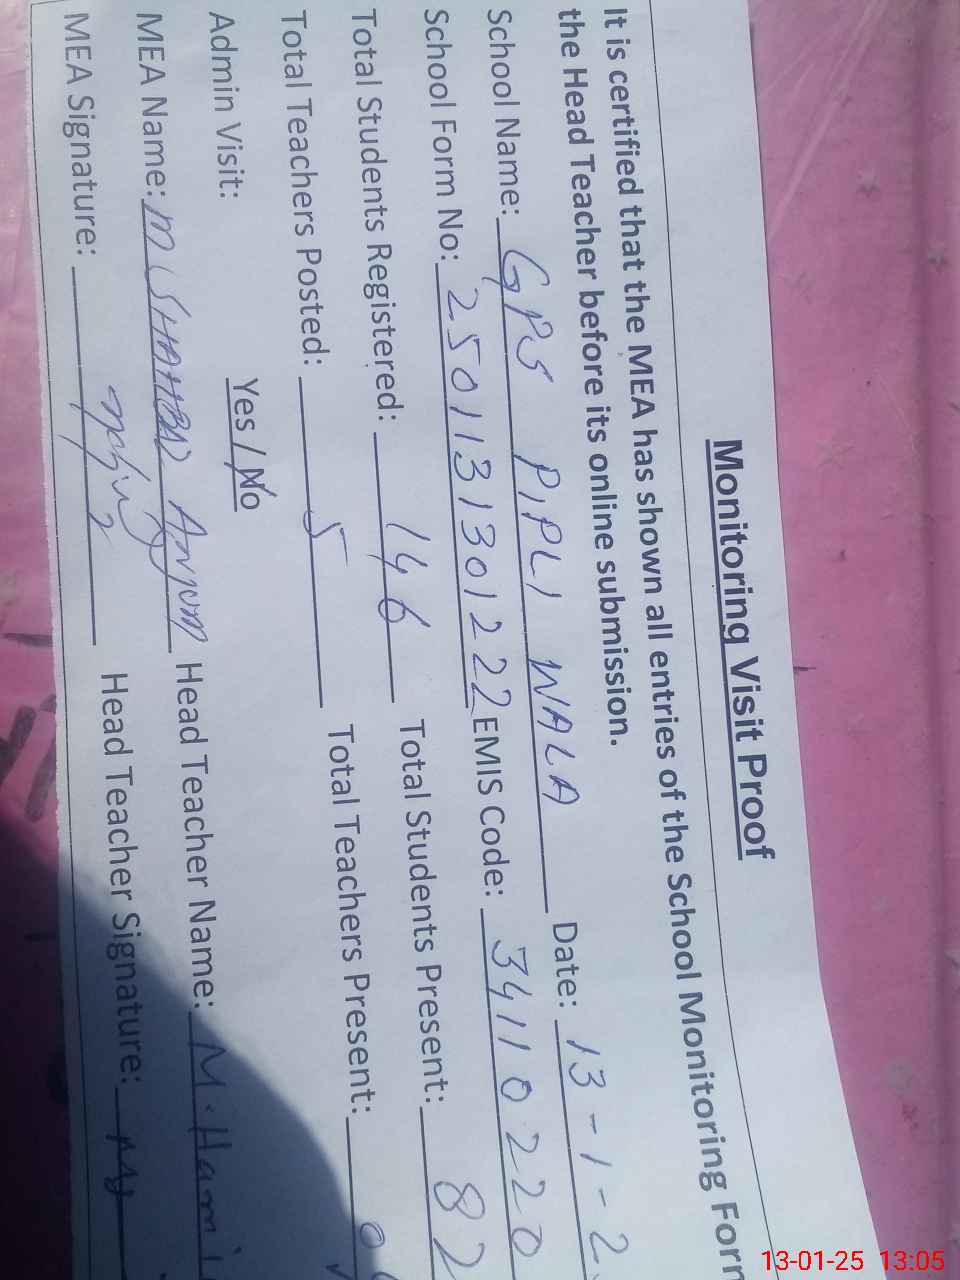 Monitoring Visit Proof
It is certified that the MEA has shown all entries of the School Monitoring Form
the Head Teacher before its online submission.
School Name: GPS PIPLI WALA Date: 13-1-2
School Form No: 2501131301222 EMIS Code: 34110220
Total Students Registered: 146 Total Students Present: 82
Total Teachers Posted: 5 Total Teachers Present:
Admin Visit: Yes / No
MEA Name: M SHAHBAZ Anjum Head Teacher Name: M. Hami
MEA Signature: Head Teacher Signature:
13-01-25 13:05